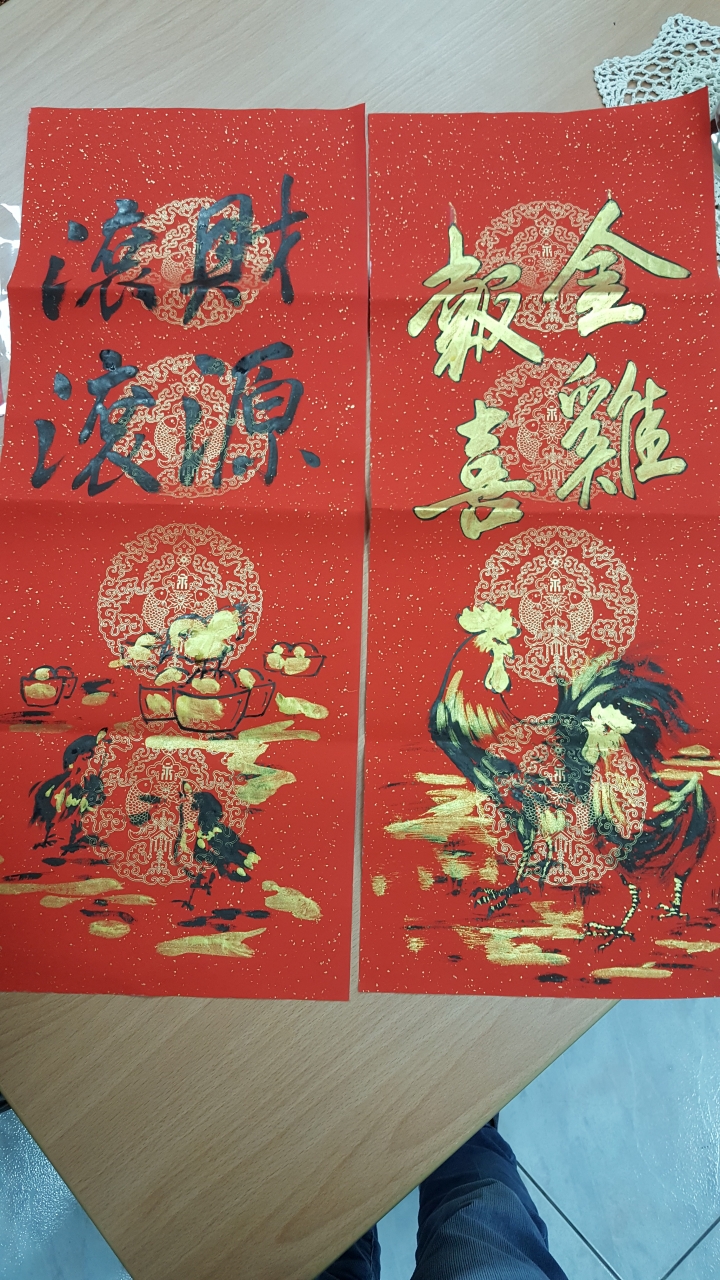 金雞
報喜
財源
滾滾